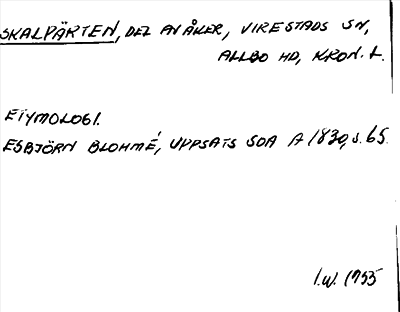 SKALPÄRTEN, DEL AV ÅKER, VIRESTADS SN,
ALLBO HD, KRON. L.
ETYMOLOGI.
ESBJÖRN BLOHMÉ, UPPSATS SOA A 1830, s. 65.
I.W. 1955